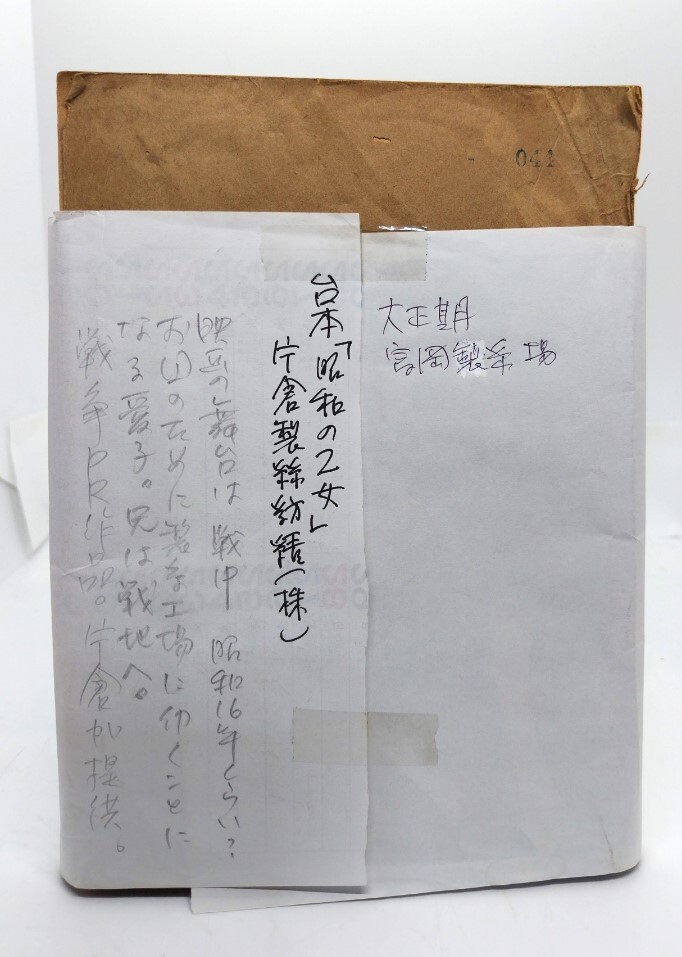 大正期
富岡製糸場
台本「昭和の乙女」
片倉製絲紡績(株)
映画の舞台は 戦中 昭和16年くらい?
お国のために製糸工場に働くことに
なる愛子。兄は戦地へ。
戦争PR作品。片倉が提供。